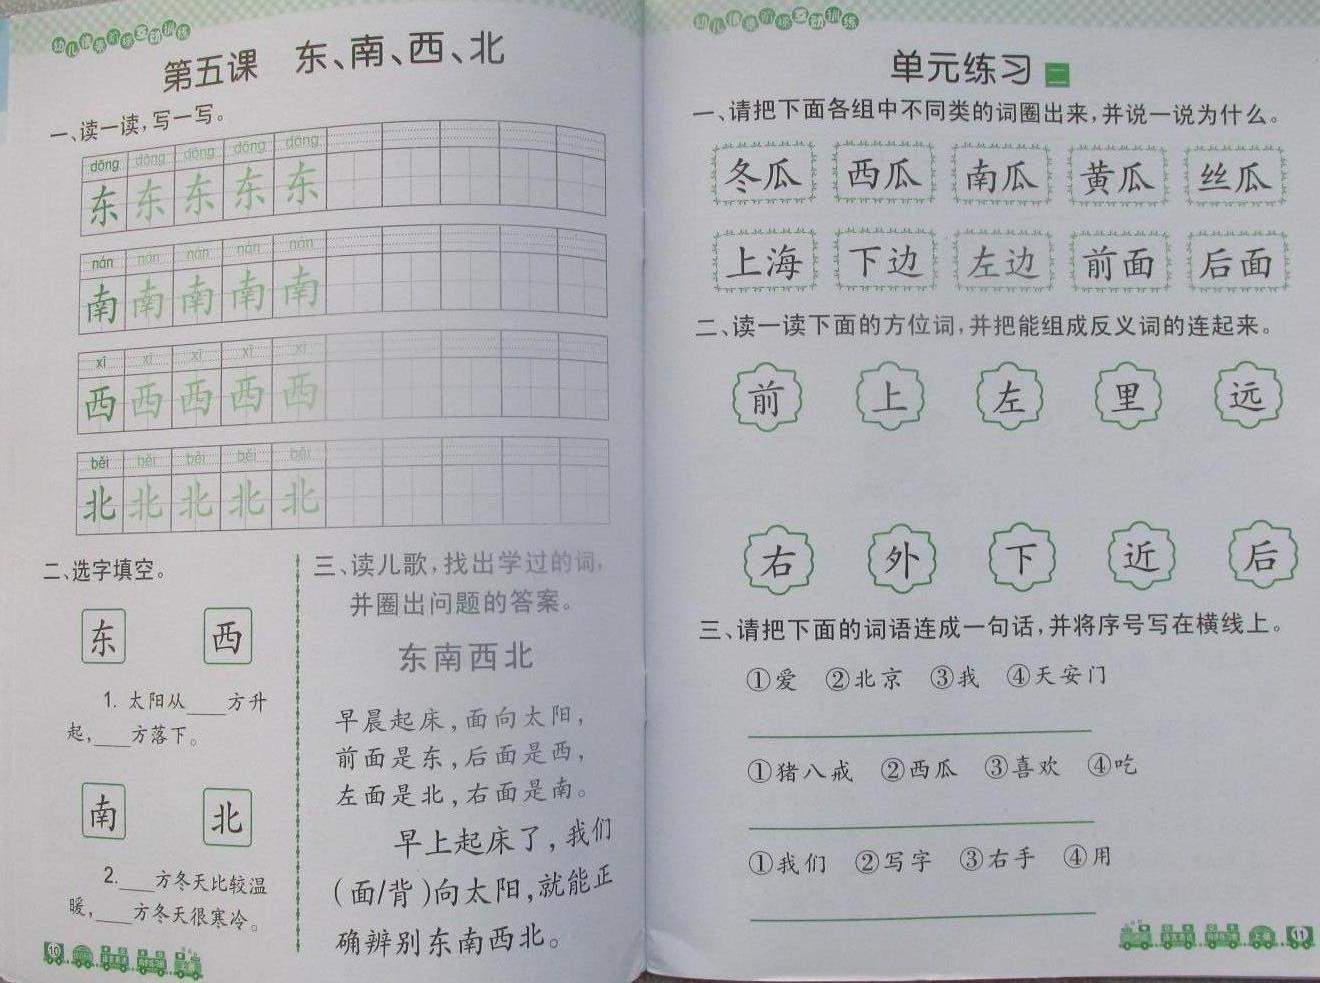 幼儿情景阶梯互动训练
第五课 东、南、西、北
一、读一读,写一写。
dōng dōng dōng dōng dōng
东 东 东 东 东
nán nán nán nán nán
南 南 南 南 南
xī xī xī xī xī
西 西 西 西 西
běi běi běi běi běi
北 北 北 北 北
二、选字填空。
东 西
1. 太阳从___方升
起,___方落下。
南 北
2.___方冬天比较温
暖,___方冬天很寒冷。
三、读儿歌,找出学过的词,
并圈出问题的答案。
东南西北
早晨起床,面向太阳,
前面是东,后面是西,
左面是北,右面是南。
早上起床了,我们
(面/背)向太阳,就能正
确辨别东南西北。
10
幼儿情景阶梯互动训练
单元练习 二
一、请把下面各组中不同类的词圈出来,并说一说为什么。
冬瓜 西瓜 南瓜 黄瓜 丝瓜
上海 下边 左边 前面 后面
二、读一读下面的方位词,并把能组成反义词的连起来。
前 上 左 里 远
右 外 下 近 后
三、请把下面的词语连成一句话,并将序号写在横线上。
①爱 ②北京 ③我 ④天安门
①猪八戒 ②西瓜 ③喜欢 ④吃
①我们 ②写字 ③右手 ④用
11